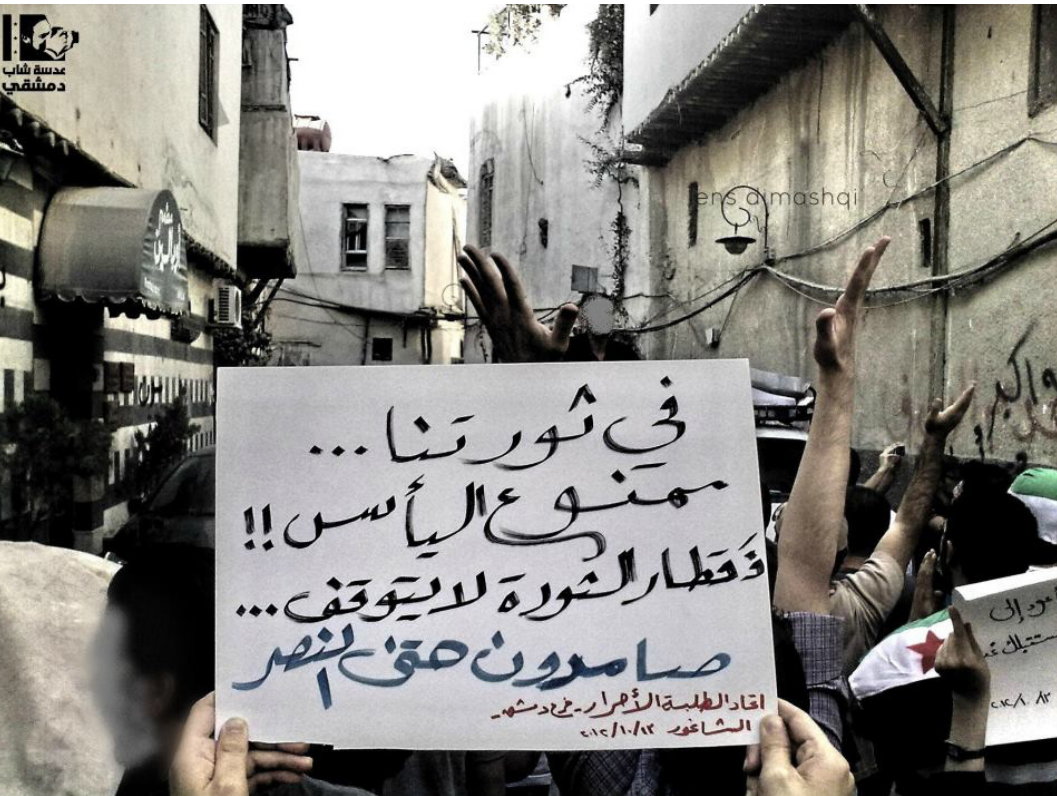 عدسة شاب
دمشقي
lens dimashqi
في ثورتنا ...
ممنوع اليأس !!
فقطار الثورة لا يتوقف ...
صامدون حتى النصر
اتحاد الطلبة الأحرار - فرع دمشق -
الشاغور ٢٠١٢/١٠/١٢
إلى